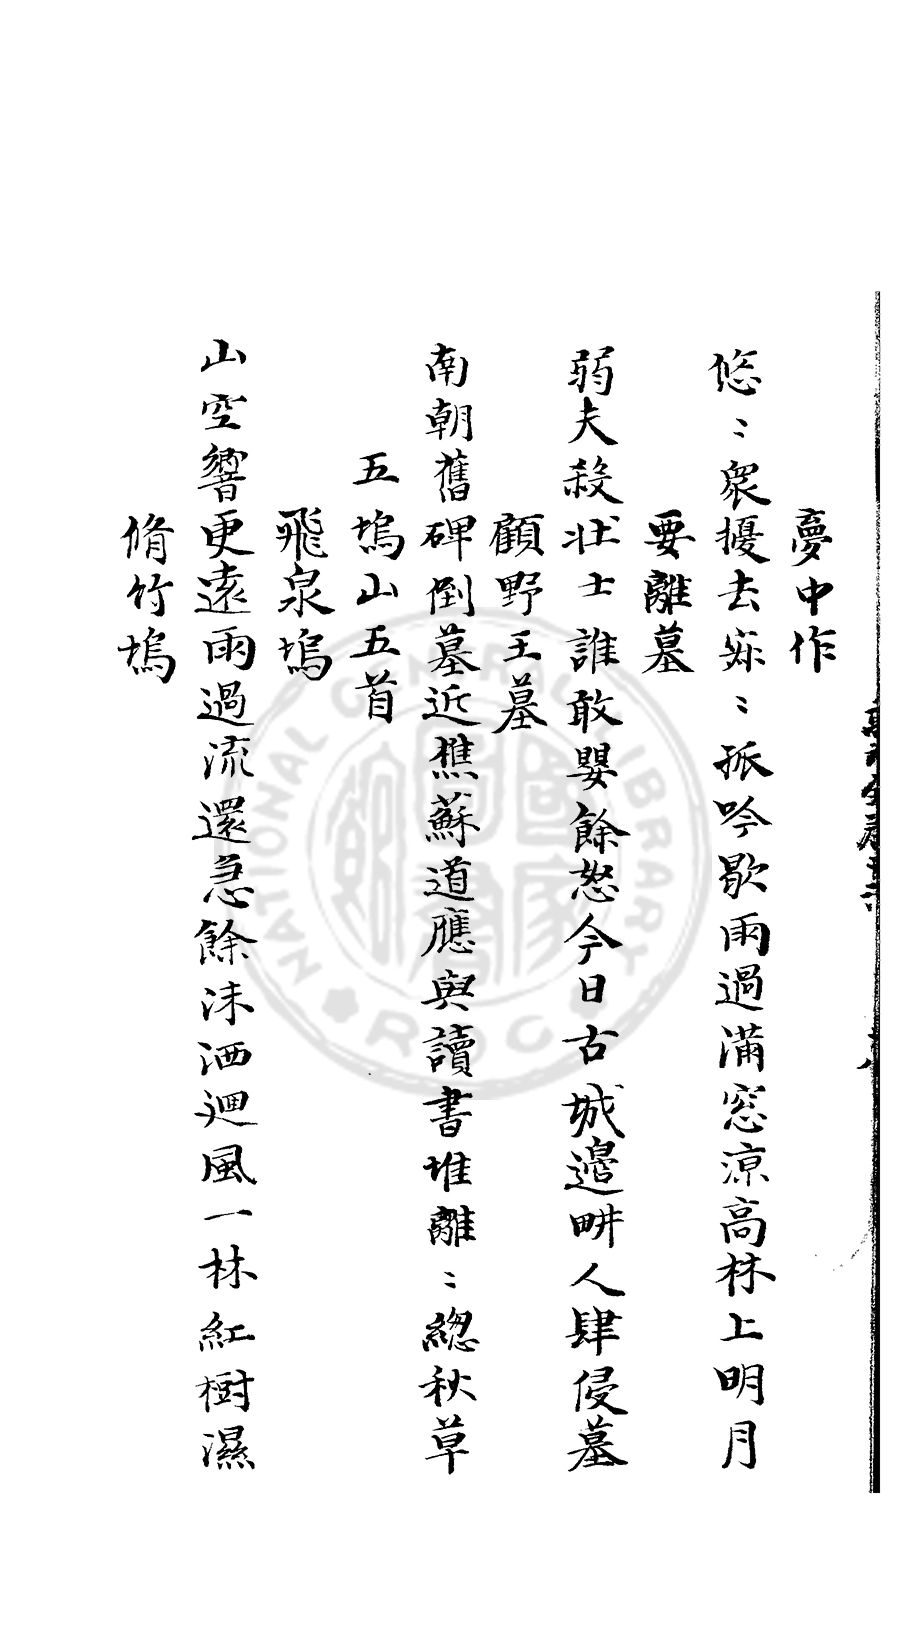 夢中作
悠〻衆擾去寂〻孤吟歇雨過滿窓涼高林上明月
要離墓
弱夫殺壯士誰敢嬰餘怒今日古城邉畊人肆侵墓
顧野王墓
南朝舊碑倒墓近樵蘇道應與讀書堆離〻緫秋草
五塢山五首
飛泉塢
山空響更遠雨過流還急餘沫洒廻風一林紅樹濕
脩竹塢
NATIONAL CENTRAL LIBRARY
R.O.C